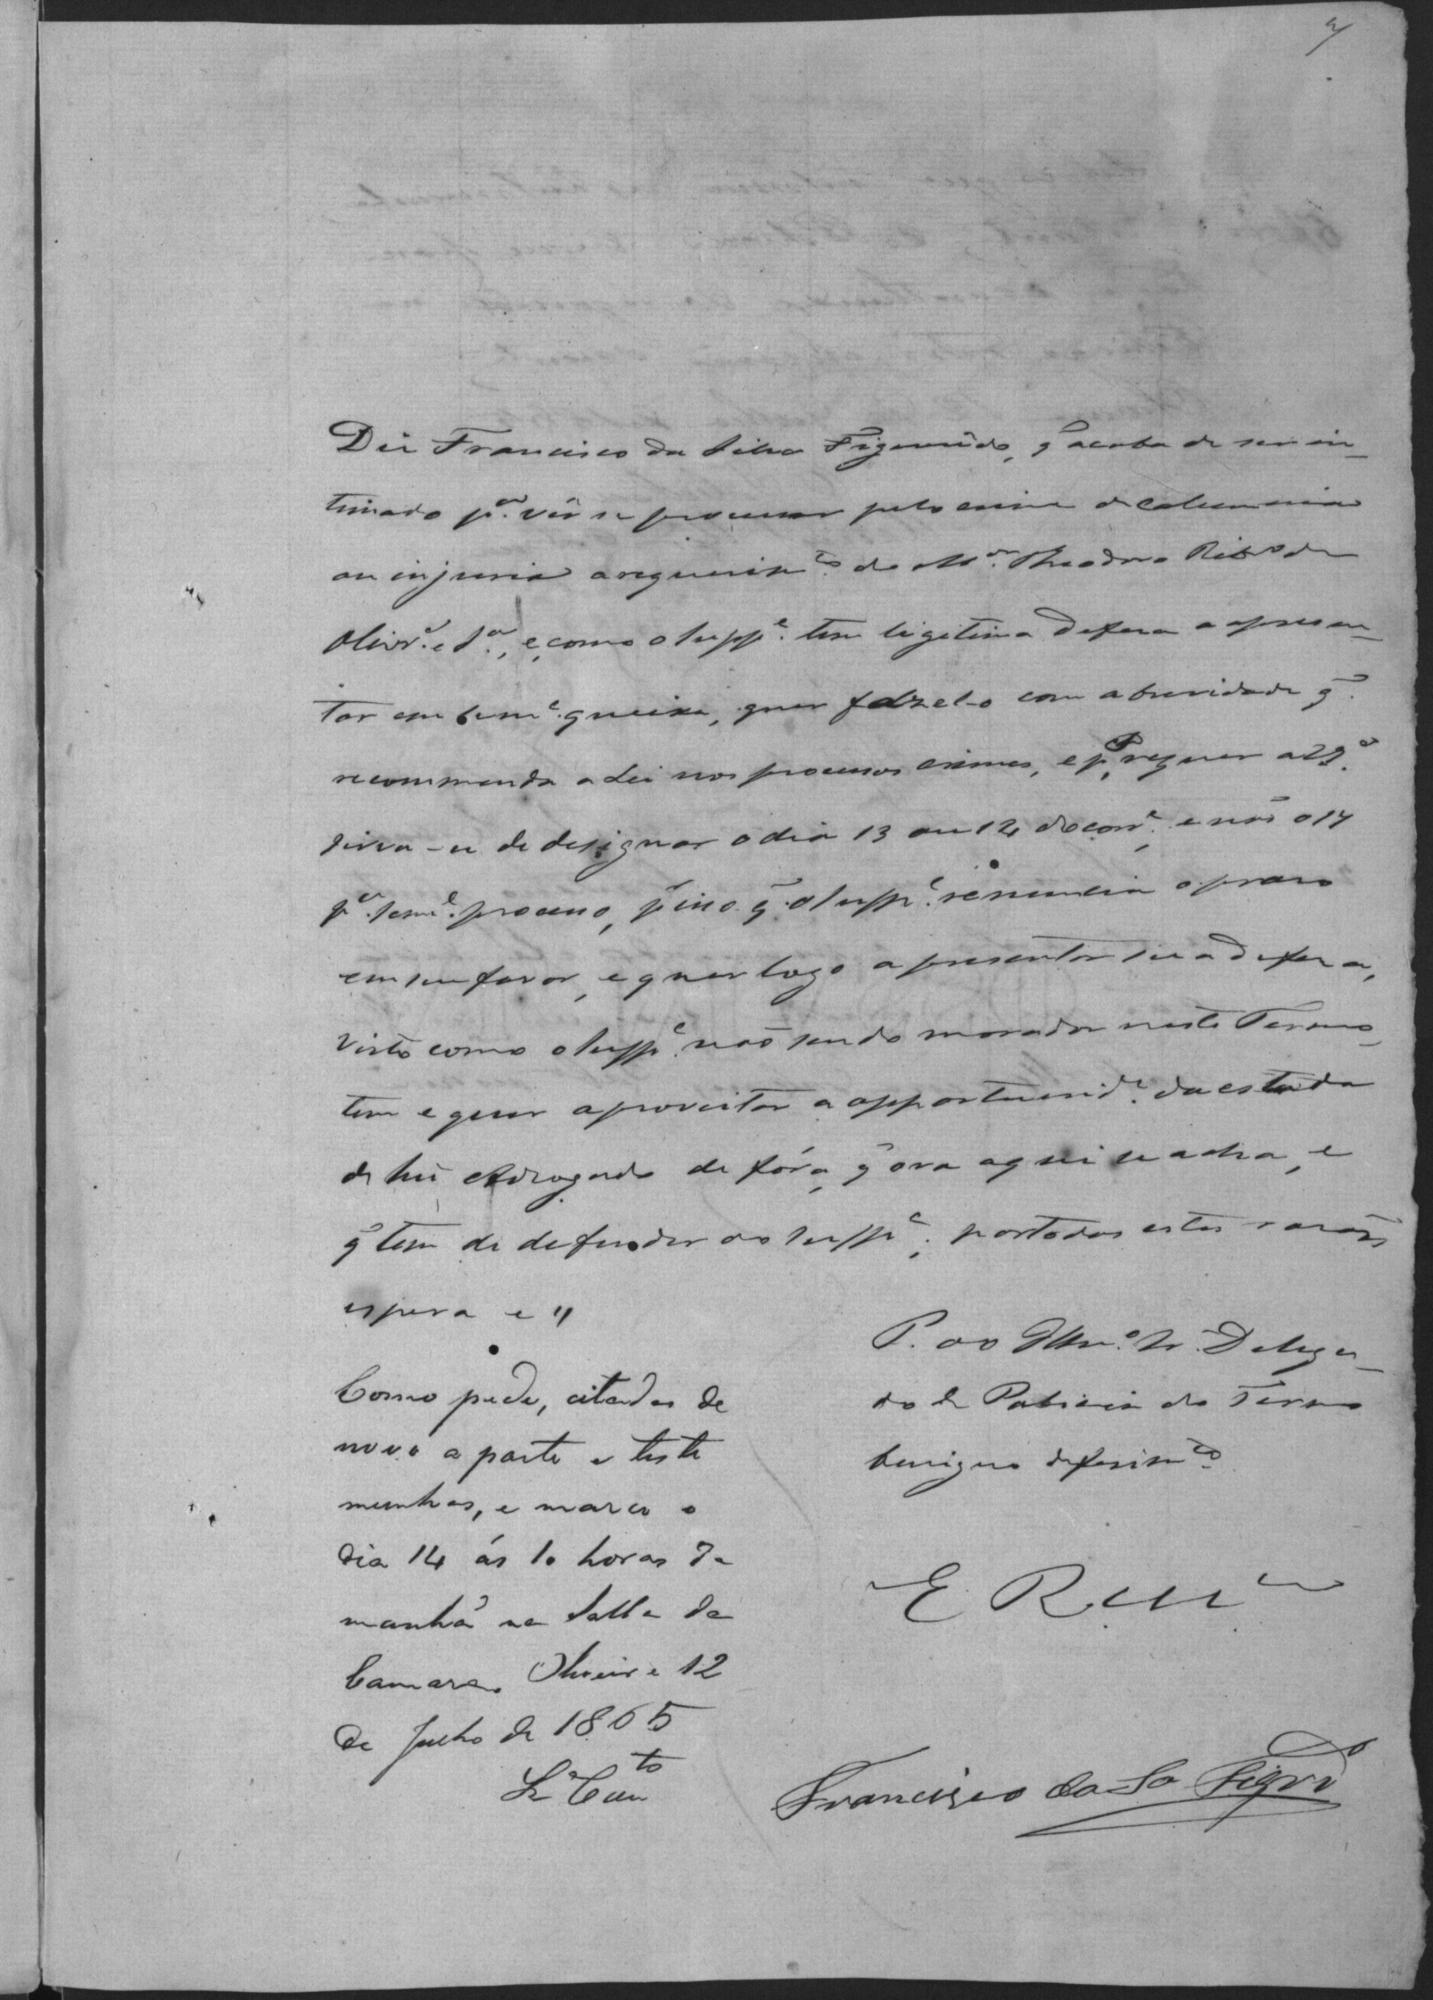 Diz Francisco da Silva Figueirêdo, q̃ acaba de ser in-
timado pª. vêr se processar pelo crime de calumnia
ou injuria a requerimto. de Mel. Theodoro Ribrº de
Olivrª. e Sª., e como o Suppe. tem legitima defesa a apresen-
tar em semê. queixa, quer fazel-o com a brevidade q̃.
recommenda a Lei nos processos crimes, e pr. requer a VSª.
sirva-se de designar o dia 13 ou 14 do corre. e não o 17
pª. seme. processo, pr isso q̃. o Suppe. renuncia o praso
em seu favor, e quer logo apresentar sua defesa,
visto como o Suppe. não sendo morador neste Termo,
tem e quer aproveitar a opportunide. da estada
de hũ Advogado de fóra, q̃ ora aqui se acha, e
q̃ tem de defender ao Suppe.; por todas estas rasões
espera e "
P. ao Illmo. Sr. Delega-
do de Policia do Termo
benigno deferimto.
E R Mce
Francisco da Sª Figrdº
Como pede, citadas de
novo a parte e teste
munhas, e marco o
dia 14 ás 10 horas da
manhã na Salla da
Camara. Oliveira 12
de Julho de 1865